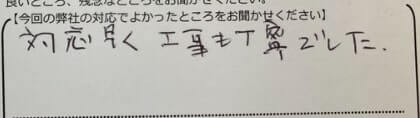 良いところ、残念なところをお聞かせください。
【今回の弊社の対応でよかったところをお聞かせください】
対応早く 工事も丁寧でした.